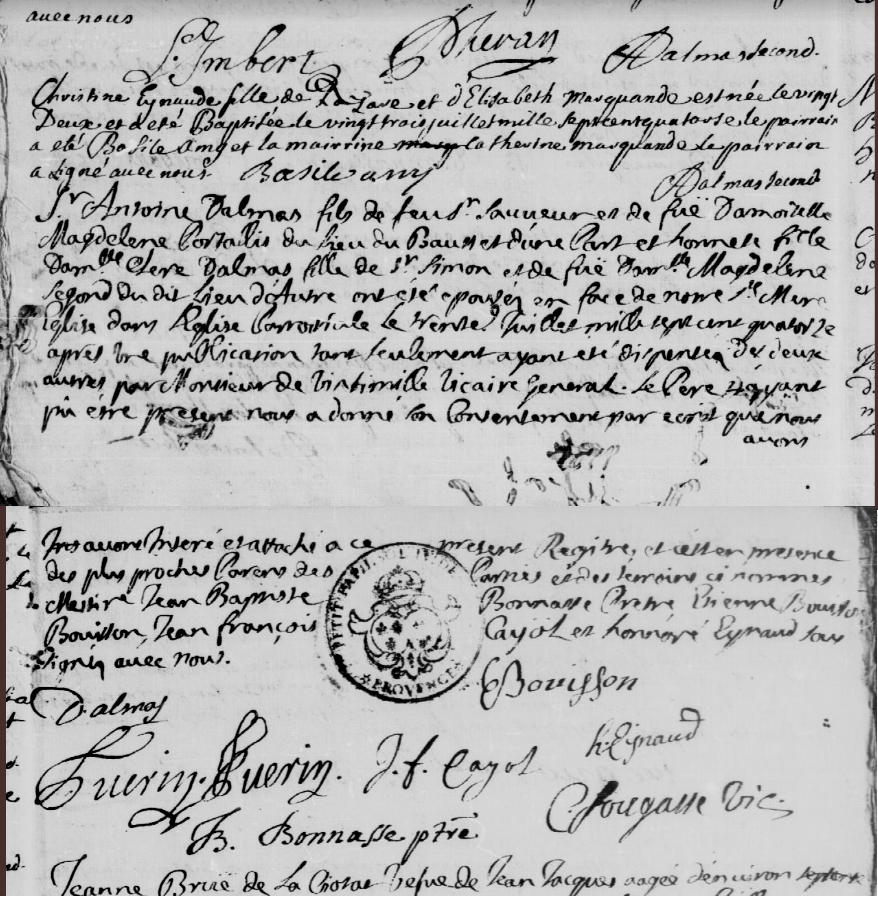 avec nous
Imbert Dalmas second.
Christine Eynaude fille de et d'Elisabeth marquande est née le vingt
Deux et a eté Baptisée le vingt trois juillet mille sept cent quatorse le pairrain
a eté Basile amy et la mairrine Catherine marquande le pairrain
a signé avec nous Basile amy
Dalmas second
Sr Antoine Dalmas fils de feu Sr Sauveur et de fuë Damoiselle
Magdelene Portalis du Lieu du Bausset d'une Part et honnete fille
Damlle Clere Dalmas fille de Sr Simon et de fuë Damlle Magdelene
Segond du dit Lieu d'Autre ont eté epousés en face de notre Ste Mere
Eglise dans l'Eglise Parroissiale le trente Juillet mille sept cent quatorze
après une publication tant seulement ayant eté dispensés des deux
autres par Monsieur de Vintimille Vicaire General. Le Pere n'ayant
pû étre present nous a donné son Consentement par ecrit que nous
avons
avons Inseré et attaché a ce present Registre, et c'est en presence
des plus proches Parens des Parties et des temoins ci nommes
Messire Jean Baptiste Bonnasse Pretre Etienne Bouisson
Bouisson, Jean françois Cayol et honoré Eynaud sous
signés avec nous.
PROVENCE
Bouisson
Dalmas
h. Eynaud
Guerin. Guerin. J. f. Cayol
Fougasse Vic.
B. Bonnasse ptre
Jeanne Bruë de La Ciotat Vefve de Jean Jacques aagée d'environ septante